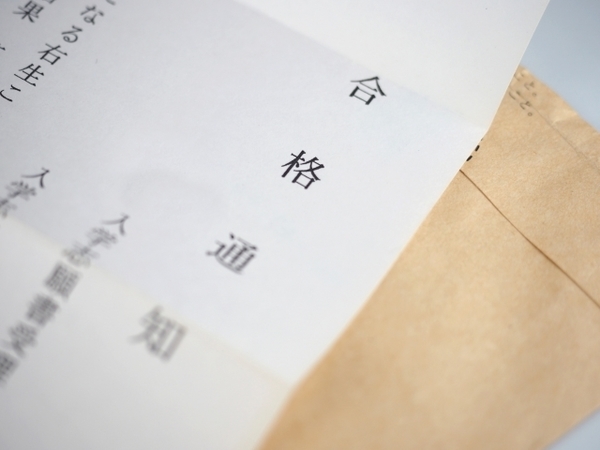 合格通知
入学志願書受理
入学
なる右生に
果